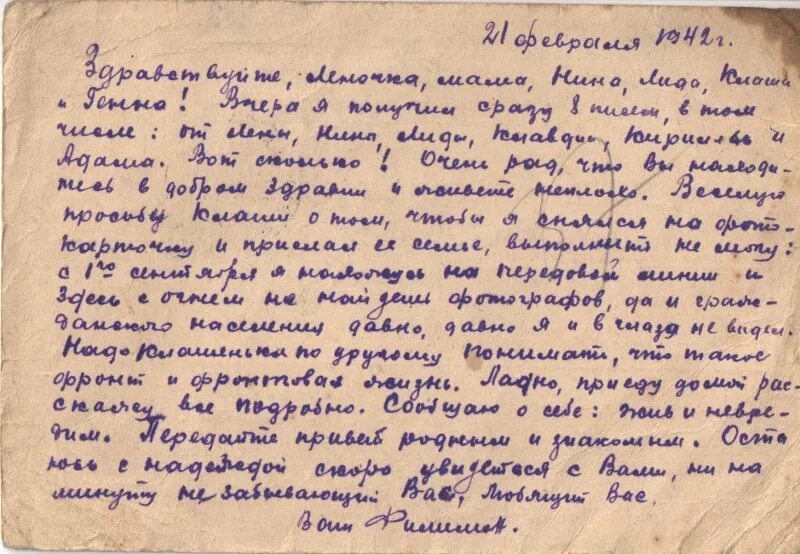 21 февраля 1942 г.
Здравствуйте, Леночка, мама, Нина, Лида, Клаша
и Генна! Вчера я получил сразу 8 писем, в том
числе: от Лены, Нины, Лиды, Клавдии, Кириллы и
Адама. Вот сколько! Очень рад, что Вы находи-
тесь в добром здравии и живете неплохо. Веселую
просьбу Клаши о том, чтобы я снялся на фото-
карточку и прислал ее семье, выполнить не могу:
с 1го сентября я нахожусь на передовой линии и
здесь с огнем не найдешь фотографов, да и граж-
данского населения давно, давно я и в глаза не видел.
Надо Клашенька по другому понимать, что такое
фронт и фронтовая жизнь. Ладно, приеду домой рас-
скажу все подробно. Сообщаю о себе: жив и невре-
дим. Передайте привет родным и знакомым. Оста
юсь с надеждой скоро увидеться с Вами, ни на
минуту не забывающий Вас, любящий Вас,
Ваш Филимон.